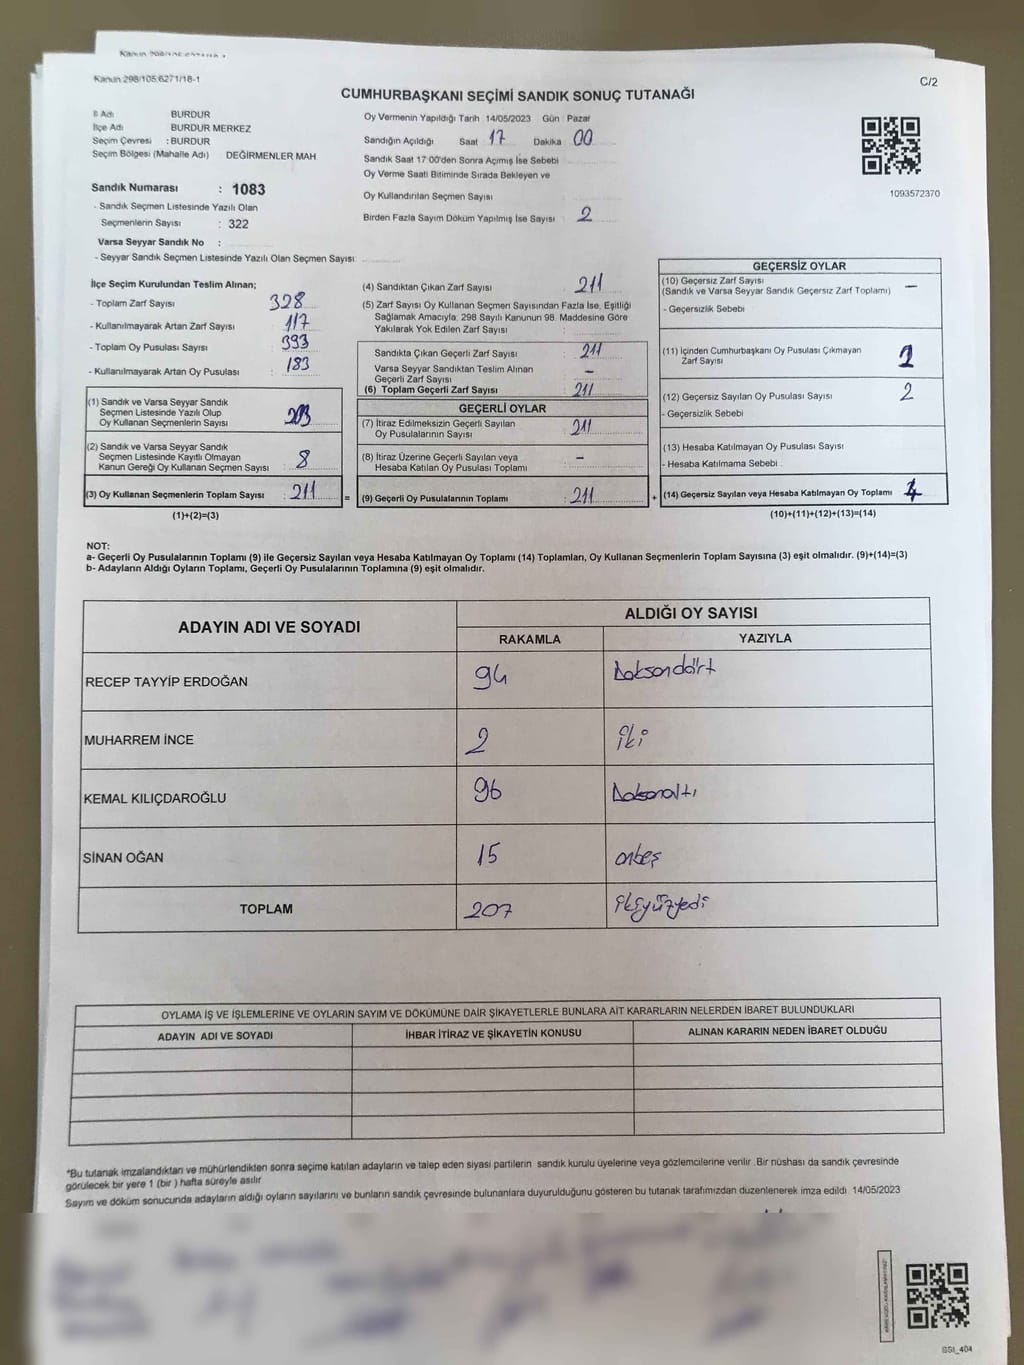 Kanun 298/105;6271/18-1
C/2
CUMHURBAŞKANI SEÇİMİ SANDIK SONUÇ TUTANAĞI
İl Adı BURDUR
İlçe Adı BURDUR MERKEZ
Seçim Çevresi : BURDUR
Seçim Bölgesi (Mahalle Adı) DEĞİRMENLER MAH
Sandık Numarası : 1083
- Sandık Seçmen Listesinde Yazılı Olan
Seçmenlerin Sayısı : 322
Varsa Seyyar Sandık No :
- Seyyar Sandık Seçmen Listesinde Yazılı Olan Seçmen Sayısı:
Oy Vermenin Yapıldığı Tarih 14/05/2023 Gün : Pazar
Sandığın Açıldığı Saat 17 Dakika 00
Sandık Saat 17:00'den Sonra Açımış İse Sebebi
Oy Verme Saati Bitiminde Sırada Bekleyen ve
Oy Kullandırılan Seçmen Sayısı
Birden Fazla Sayım Döküm Yapılmış İse Sayısı : 2
1093572370
İlçe Seçim Kurulundan Teslim Alınan;
- Toplam Zarf Sayısı : 328
- Kullanılmayarak Artan Zarf Sayısı : 117
- Toplam Oy Pusulası Sayısı : 393
- Kullanılmayarak Artan Oy Pusulası : 183
(1) Sandık ve Varsa Seyyar Sandık
Seçmen Listesinde Yazılı Olup
Oy Kullanan Seçmenlerin Sayısı : 203
(2) Sandık ve Varsa Seyyar Sandık
Seçmen Listesinde Kayıtlı Olmayan
Kanun Gereği Oy Kullanan Seçmen Sayısı : 8
(3) Oy Kullanan Seçmenlerin Toplam Sayısı : 211 =
(1)+(2)=(3)
(4) Sandıktan Çıkan Zarf Sayısı : 211
(5) Zarf Sayısı Oy Kullanan Seçmen Sayısından Fazla İse, Eşitliği
Sağlamak Amacıyla; 298 Sayılı Kanunun 98. Maddesine Göre
Yakılarak Yok Edilen Zarf Sayısı :
Sandıkta Çıkan Geçerli Zarf Sayısı : 211
Varsa Seyyar Sandıktan Teslim Alınan
Geçerli Zarf Sayısı : -
(6) Toplam Geçerli Zarf Sayısı : 211
GEÇERLİ OYLAR
(7) İtiraz Edilmeksizin Geçerli Sayılan
Oy Pusulalarının Sayısı : 211
(8) İtiraz Üzerine Geçerli Sayılan veya
Hesaba Katılan Oy Pusulası Toplamı : -
(9) Geçerli Oy Pusulalarının Toplamı : 211 +
GEÇERSİZ OYLAR
(10) Geçersiz Zarf Sayısı
(Sandık ve Varsa Seyyar Sandık Geçersiz Zarf Toplamı) -
- Geçersizlik Sebebi
(11) İçinden Cumhurbaşkanı Oy Pusulası Çıkmayan
Zarf Sayısı
(12) Geçersiz Sayılan Oy Pusulası Sayısı 2
- Geçersizlik Sebebi
(13) Hesaba Katılmayan Oy Pusulası Sayısı
- Hesaba Katılmama Sebebi
(14) Geçersiz Sayılan veya Hesaba Katılmayan Oy Toplamı 4
(10)+(11)+(12)+(13)=(14)
NOT:
a- Geçerli Oy Pusulalarının Toplamı (9) ile Geçersiz Sayılan veya Hesaba Katılmayan Oy Toplamı (14) Toplamları, Oy Kullanan Seçmenlerin Toplam Sayısına (3) eşit olmalıdır. (9)+(14)=(3)
b- Adayların Aldığı Oyların Toplamı, Geçerli Oy Pusulalarının Toplamına (9) eşit olmalıdır.
ADAYIN ADI VE SOYADI ALDIĞI OY SAYISI
RAKAMLA YAZIYLA
RECEP TAYYİP ERDOĞAN 94 Doksandört
MUHARREM İNCE 2 iki
KEMAL KILIÇDAROĞLU 96 Doksanaltı
SİNAN OĞAN 15 onbeş
TOPLAM 207 ikiyüzyedi
OYLAMA İŞ VE İŞLEMLERİNE VE OYLARIN SAYIM VE DÖKÜMÜNE DAİR ŞİKAYETLERLE BUNLARA AİT KARARLARIN NELERDEN İBARET BULUNDUKLARI
ADAYIN ADI VE SOYADI İHBAR İTİRAZ VE ŞİKAYETİN KONUSU ALINAN KARARIN NEDEN İBARET OLDUĞU
*Bu tutanak imzalandıktan ve mühürlendikten sonra seçime katılan adayların ve talep eden siyasi partilerin sandık kurulu üyelerine veya gözlemcilerine verilir. Bir nüshası da sandık çevresinde
görülecek bir yere 1 (bir ) hafta süreyle asılır
Sayım ve döküm sonucunda adayların aldığı oyların sayılarını ve bunların sandık çevresinde bulunanlara duyurulduğunu gösteren bu tutanak tarafımızdan düzenlenerek imza edildi. 14/05/2023
SSI_404